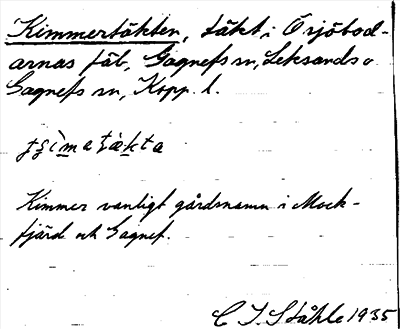 Kimmertäkten, täkt i Ösjöbod-
arnas fäb, Gagnefs sn, Leksands o.
Gagnefs sn, Kopp. l.
Kimmer vanligt gårdsnamn i Mock-
fjärd och Gagnef.
C I. Ståhle 1935